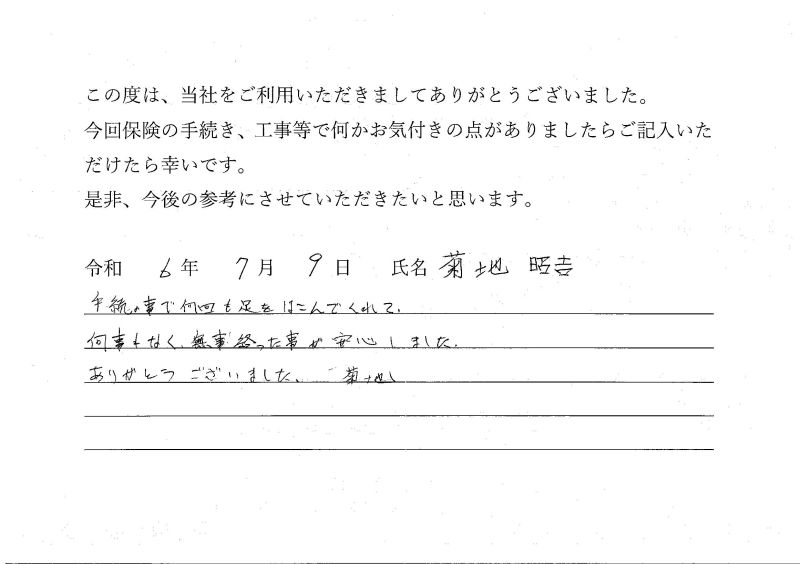 この度は、当社をご利用いただきましてありがとうございました。
今回保険の手続き、工事等で何かお気付きの点がありましたらご記入いた
だけたら幸いです。
是非、今後の参考にさせていただきたいと思います。
令和 6 年 7 月 9 日 氏名 菊地 昭吉
手続の事で何回も足をはこんでくれて、
何事もなく、無事終った事が安心しました。
ありがとうございました、 菊地